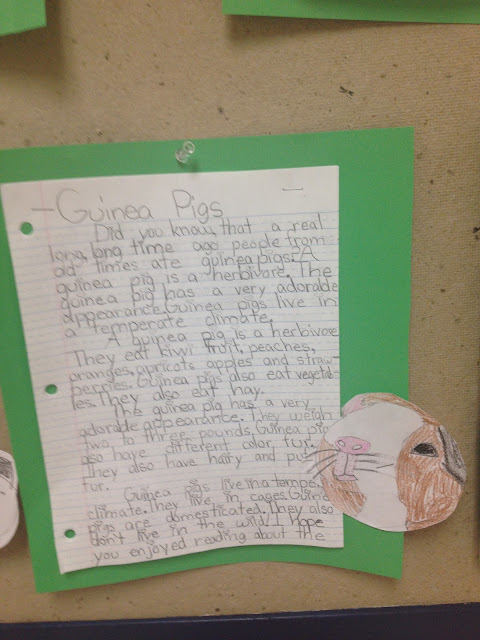 -Guinea Pigs
Did you know, that a real
long, long time ago people from
old times ate guinea pigs. A
guinea pig is a herbivore. The
guinea pig has a very adorable
appearance. Guinea pigs live in
a temperate climate.
A guinea pig is a herbivore
They eat kiwi fruit, peaches,
oranges, apricots apples and straw-
berries. Guinea pigs also eat vegetab-
les. They also eat hay.
The guinea pig has a very
adorable appearance. They weigh
two to three pounds. Guinea pig
also have different color fur.
They also have hairy and
fur.
Guinea pigs live in a
climate. They live in cages.
pigs are domesticated. They also
don't live in the wild. I hope
you enjoyed reading about the